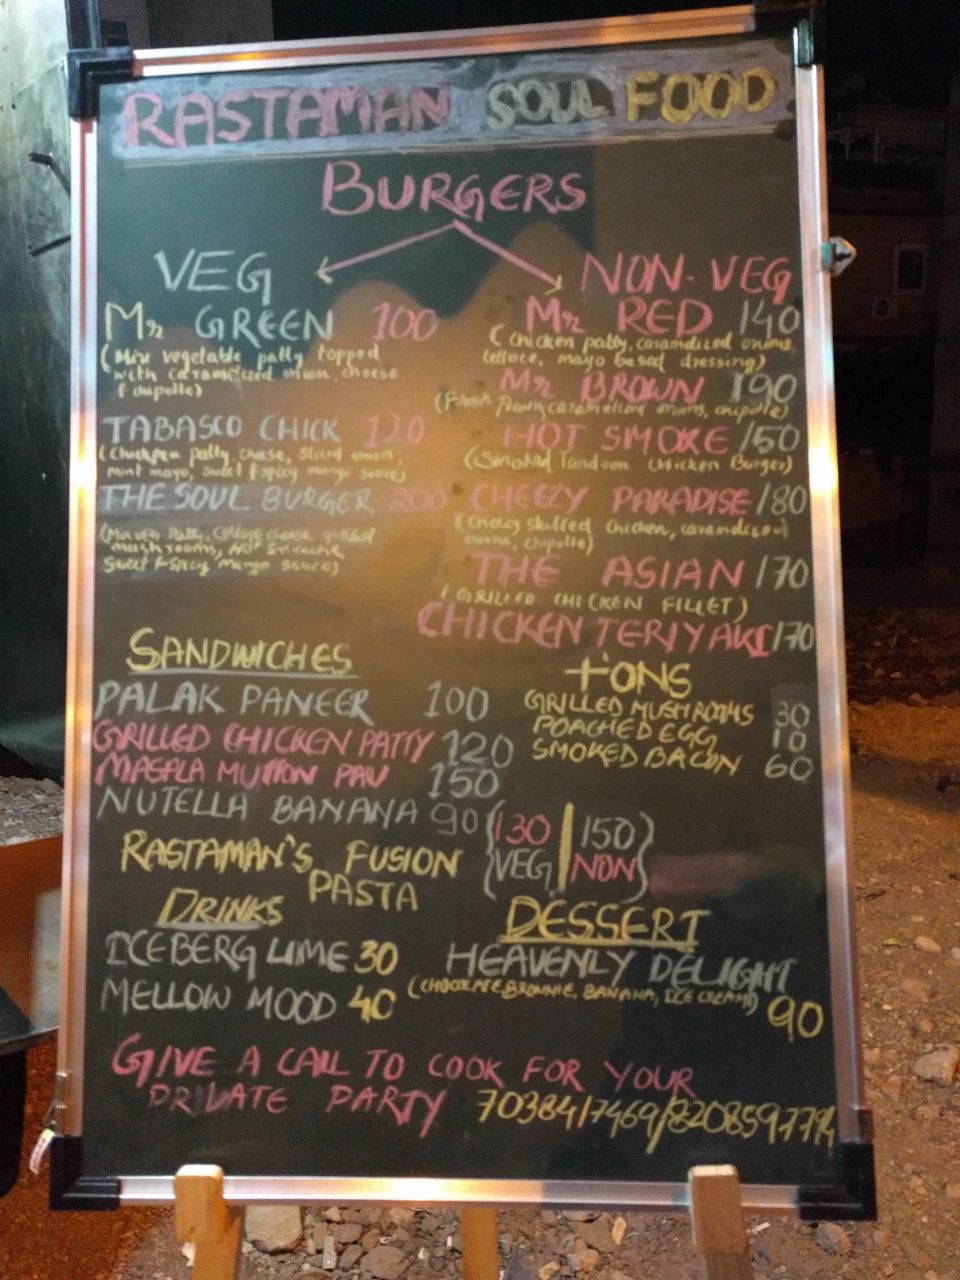 RASTAMAN SOUL FOOD
BURGERS
VEG
Mr GREEN 100
(Mix vegetable patty topped
with caramelized onion, cheese
& chipotle)
TABASCO CHICK 120
(Chickpea patty, cheese, sliced onion,
mint mayo, sweet & spicy mango sauce)
THE SOUL BURGER 200
patty, cottage cheese, grilled
mushrooms, Hot Sriracha,
Sweet & Spicy Mango sauce)
NON-VEG
Mr RED 140
(Chicken patty, caramelized onions,
lettuce, mayo based dressing)
Mr BROWN 190
caramelized onions, chipotle)
HOT SMOKE 150
(Smoked tandoori Chicken Burger)
CHEEZY PARADISE 180
(Cheezy stuffed chicken, caramelized
onions, chipotle)
THE ASIAN 170
(GRILLED CHICKEN FILLET)
CHICKEN TERIYAKI 170
SANDWICHES
PALAK PANEER 100
GRILLED CHICKEN PATTY 120
MASALA MUTTON PAV 150
NUTELLA BANANA 90
+'ONS
GRILLED MUSHROOMS 30
POACHED EGG 10
SMOKED BACON 60
RASTAMAN'S FUSION
PASTA
(130 | 150)
(VEG | NON)
DRINKS
ICEBERG LIME 30
MELLOW MOOD 40
DESSERT
HEAVENLY DELIGHT
(CHOCOLATE BROWNIE, BANANA, ICE CREAM) 90
GIVE A CALL TO COOK FOR YOUR
PRIVATE PARTY 7038417469/